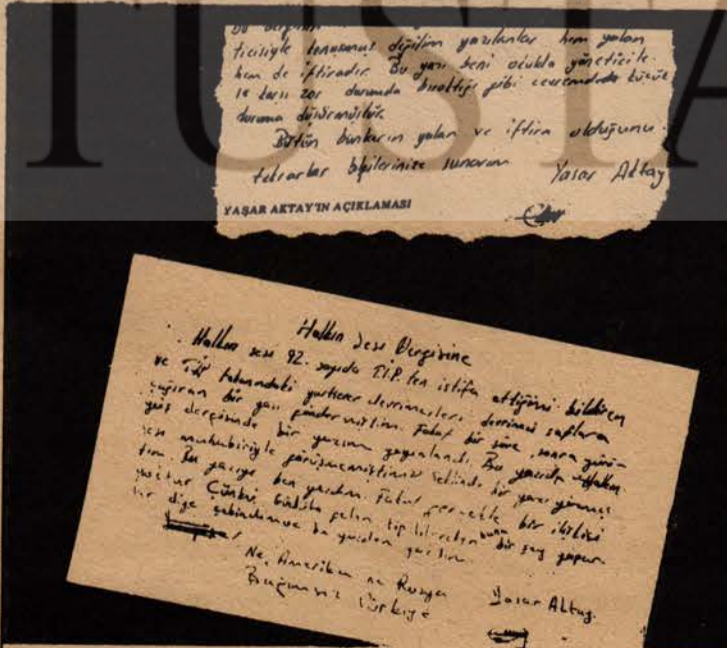 TUSTA
bu dergini
ticisiyle konuşmuş değilim yazılanlar hem yalan
hem de iftiradır. Bu yazı beni ocukta yöneticile-
re karşı zor durumda bıraktığı gibi çevremdede küçük
duruma düşürmüştür.
Bütün bunların yalan ve iftira olduğunu
tekrarlar bilgilerinize sunarım Yaşar Aktay
YAŞAR AKTAY'IN AÇIKLAMASI
Halkın Sesi Dergisine
Halkın sesi 92. sayıda T.İ.P. ten istifa ettiğimi bildiren
ve TİP tabanındaki yurtsever devrimcileri devrimci saflara
çağıran bir yazı göndermiştim. Fakat bir süre sonra yürü-
yüş dergisinde bir yazım yayınlandı. Bu yazıda Halkın
sesi muhabiriyle görüşmemiştim şeklinde bir yazı
Bu yazıyı ben yazdım. Fakat gerçekle bir ilişkisi
yoktur Çünkü bir şey yapar-
lar diye
Ne Amerika ne Rusya
Bağımsız Türkiye Yaşar Aktay.